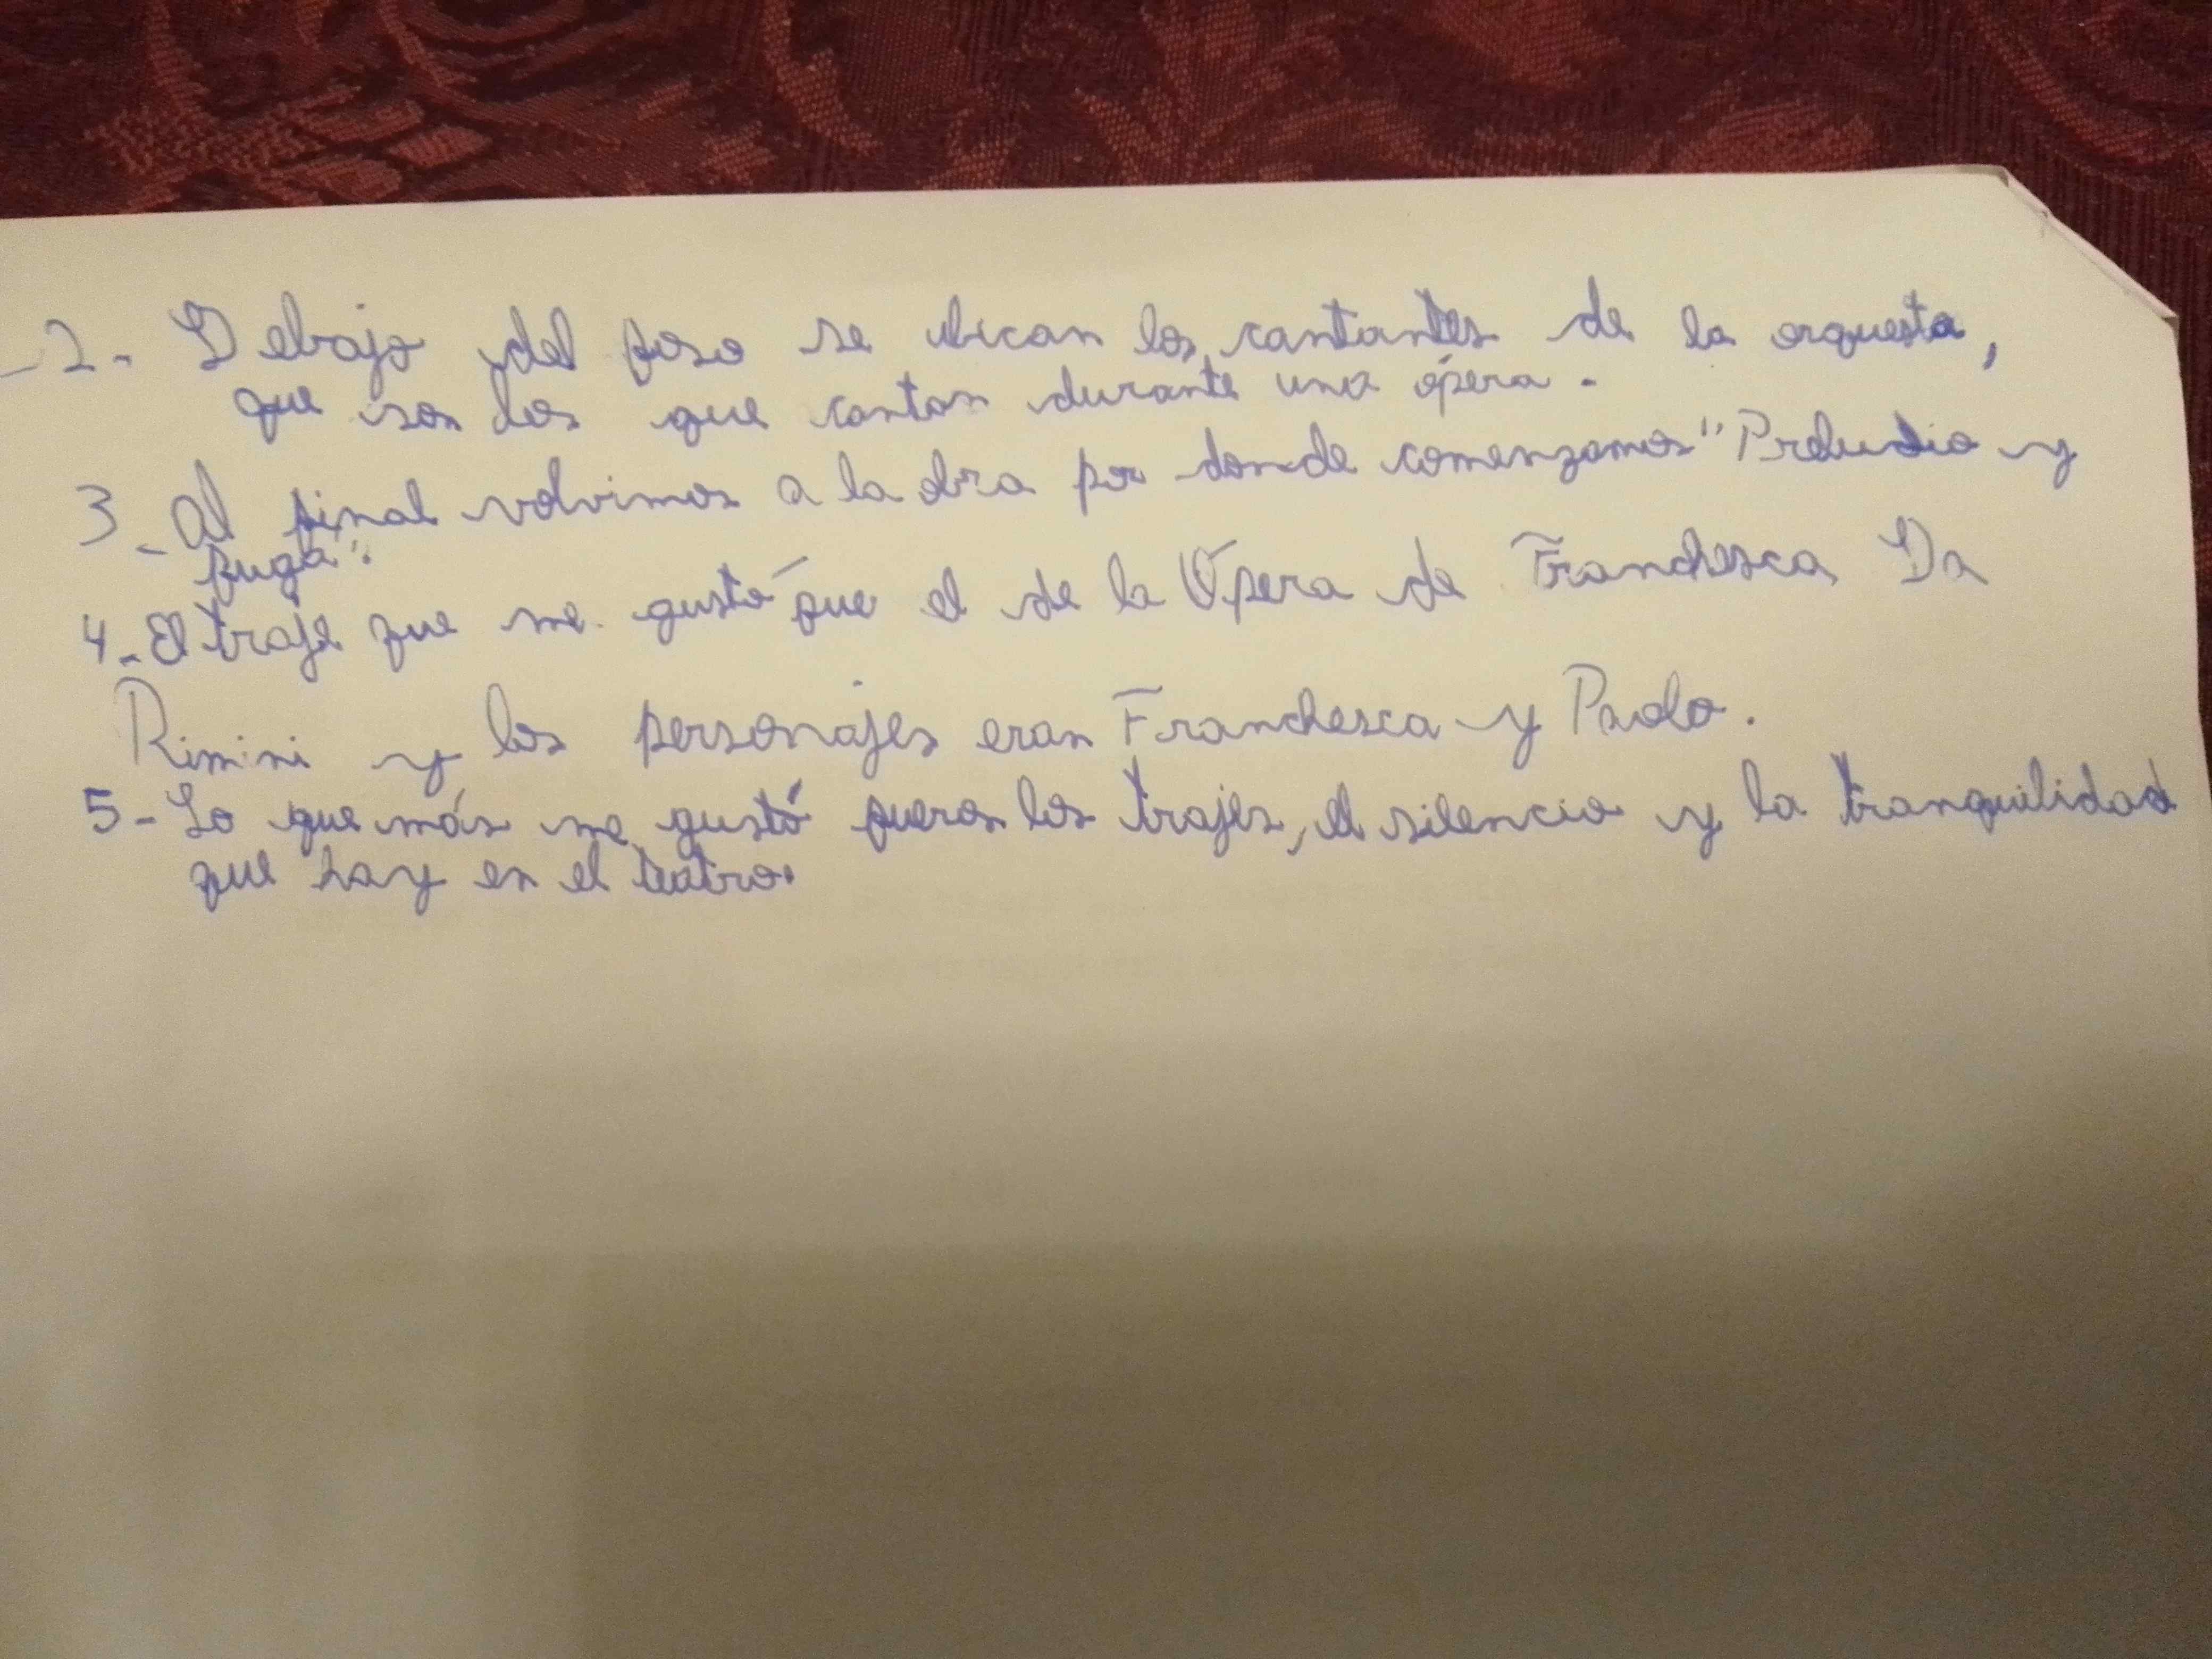 2- Debajo del foso se ubican los cantantes de la orquesta,
que son los que cantan durante una ópera.
3- Al final volvimos a la obra por donde comenzamos "Preludio y
fuga".
4- El traje que me gustó fue el de la Ópera de Franchesca Da
Rimini y los personajes eran Franchesca y Paolo.
5- Lo que más me gustó fueron los trajes, el silencio y la tranquilidad
que hay en el teatro.